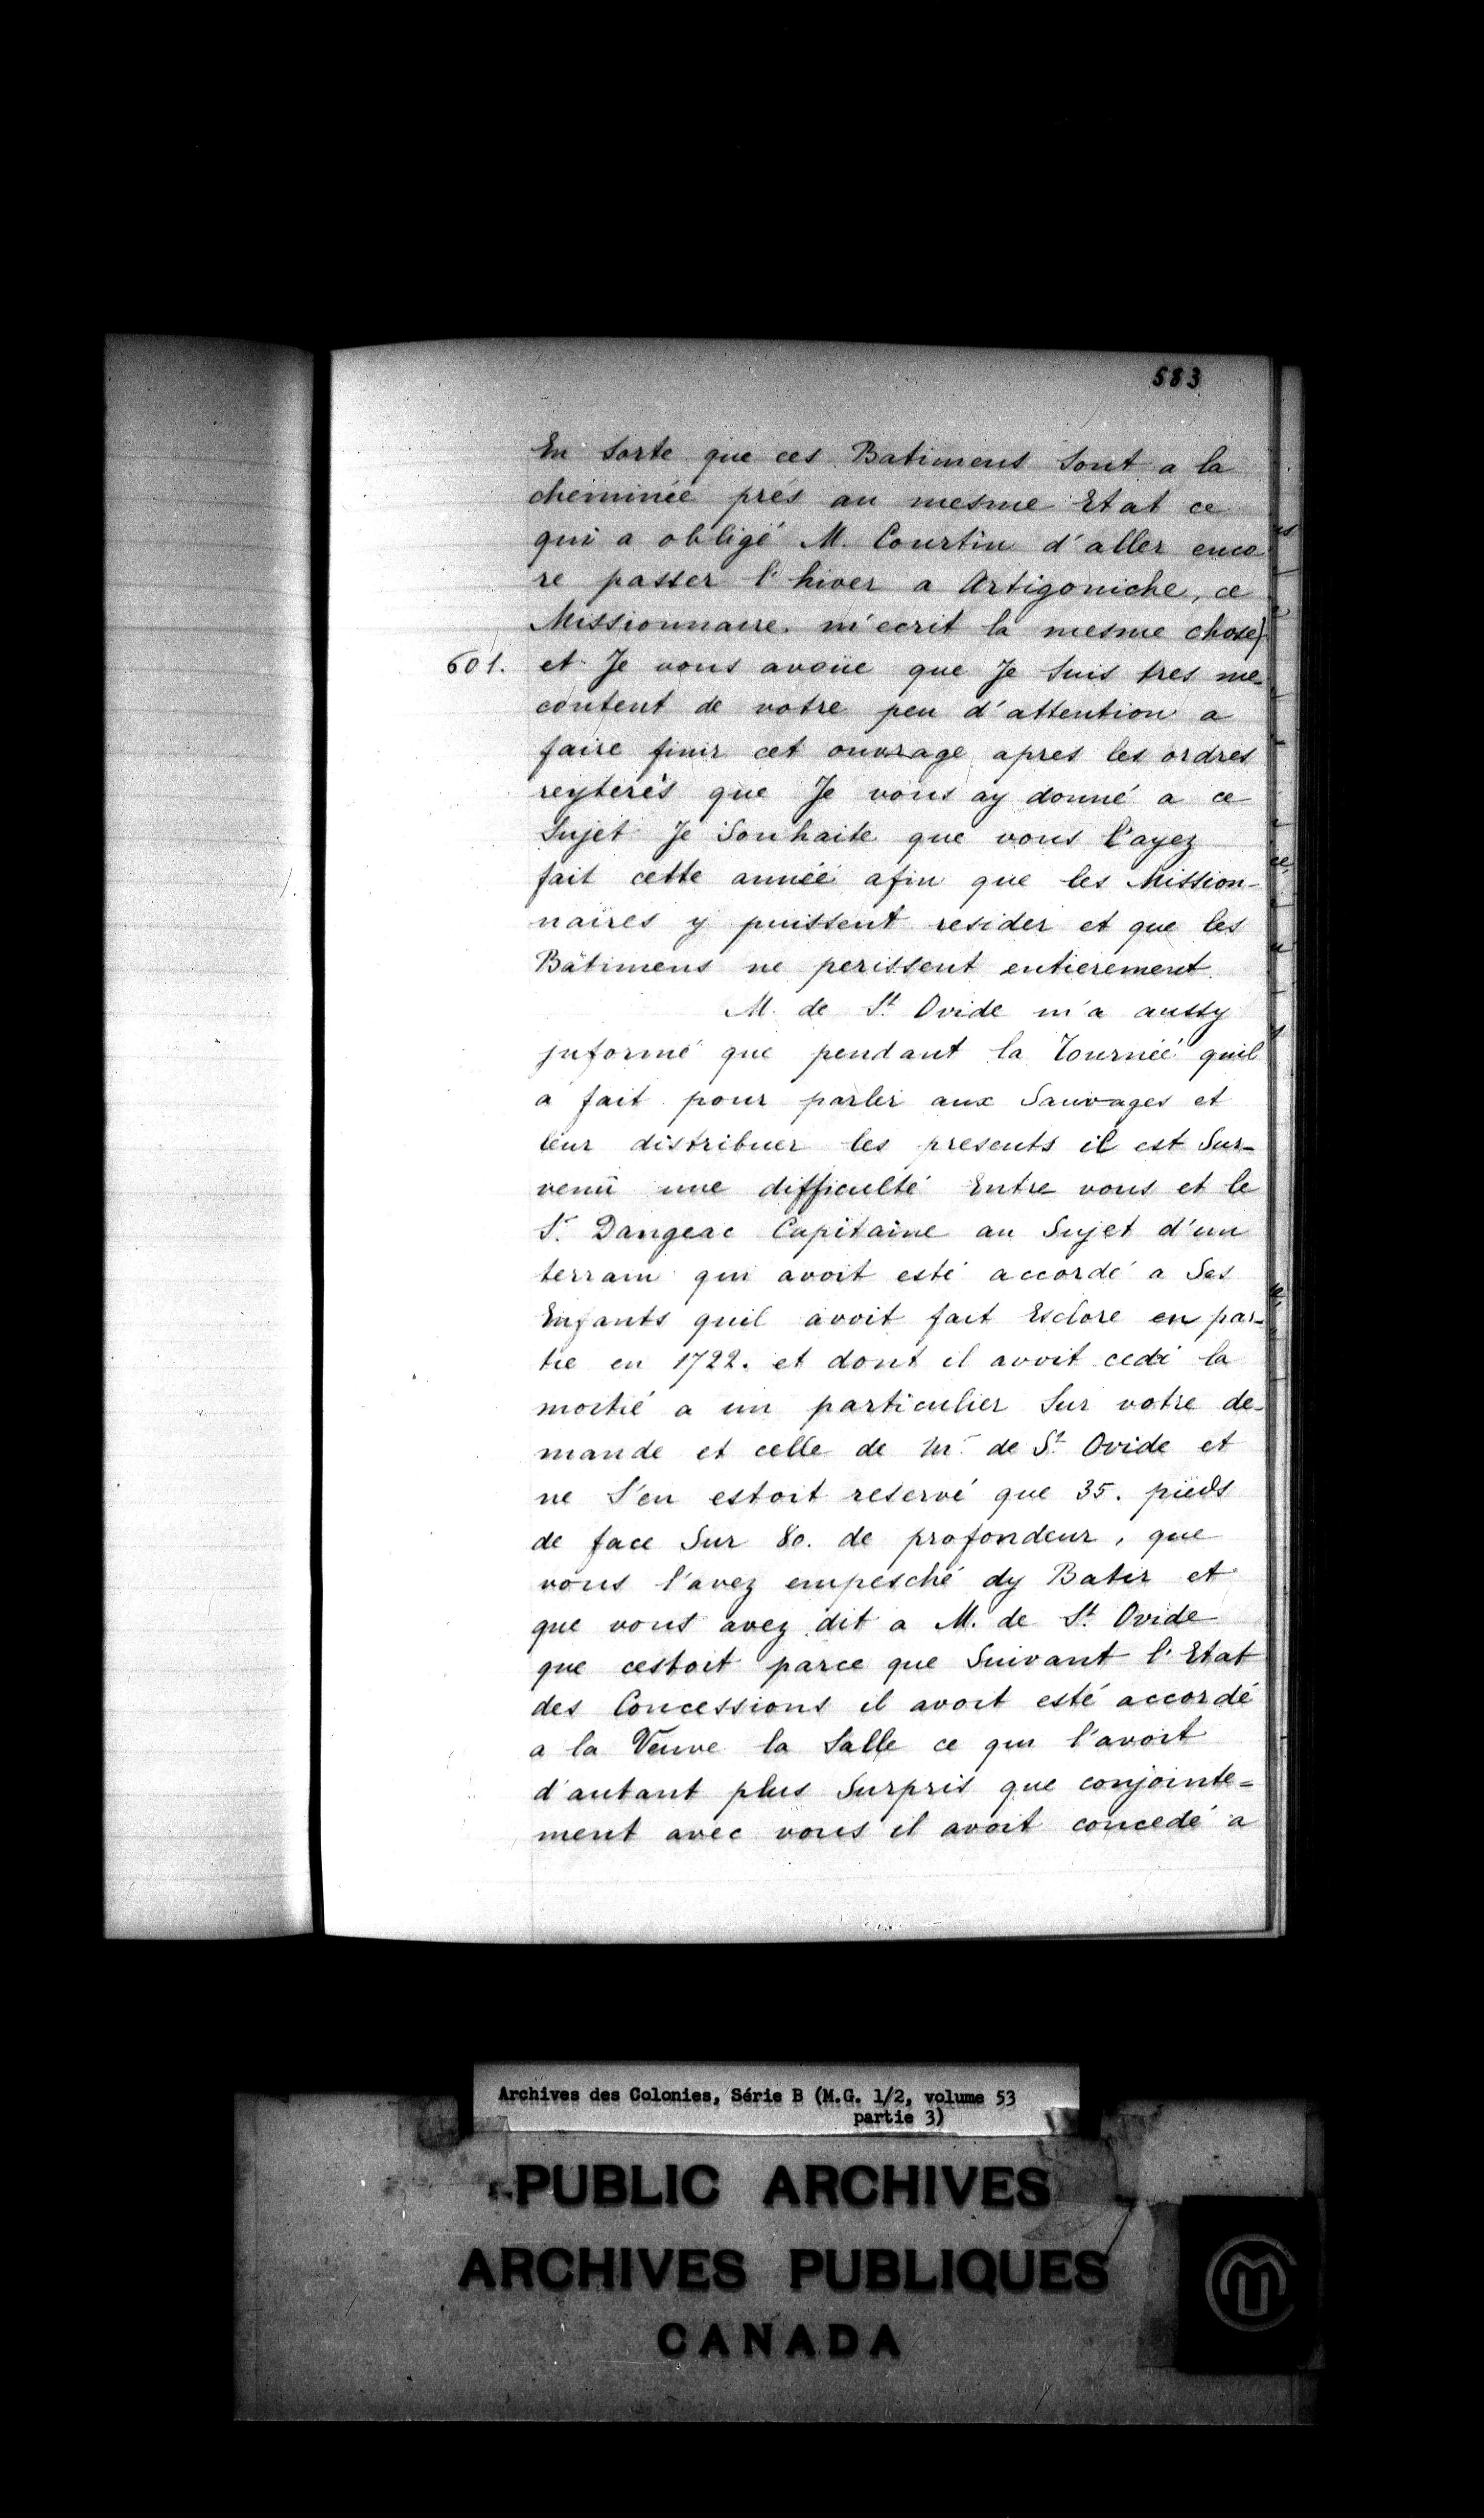 583
En Sorte que ces Batimens Sont a la
cheminée prés au mesme Etat ce
qui a obligé M. Courtin d'aller enco
re passer l'hiver a Artigoniche, ce
Missionnaire m'ecrit la mesme chose)
601. et Je vous avoüe que Je Suis tres me-
content de votre peu d'attention a
faire finir cet ouvrage apres les ordres
reyterés que Je vous ay donné a ce
Sujet Je Souhaite que vous l'ayez
fait cette année afin que les Mission-
naires y puissent resider et que les
Bâtimens ne perissent entierement.
M. de St. Ovide m'a aussy
informé que pendant la Tournéé quil
a fait pour parler aux Sauvages et
leur distribuer les presents il est Sur-
venü une difficulté Entre vous et le
Sr. Dangeac Capitaine au Sujet d'un
terrain qui avoit esté accordé a Ses
Enfants quil avoit fait Esclore en par-
tie en 1722. et dont il avoit cedé la
moitié a un particulier Sur votre de-
mande et celle de Mr. de St. Ovide et
ne S'en estoit reservé que 35. pieds
de face Sur 80. de profondeur, que
vous l'avez empesché dy Batir et
que vous avez dit a M. de St. Ovide
que cestoit parce que Suivant l'Etat
des Concessions il avoit esté accordé
a la Veuve la Salle ce qui l'avoit
d'autant plus Surpris que conjointe=
ment avec vous il avoit concedé a
Archives des Colonies, Série B (M.G. 1/2, volume 53
partie 3)
PUBLIC ARCHIVES
ARCHIVES PUBLIQUES
CANADA